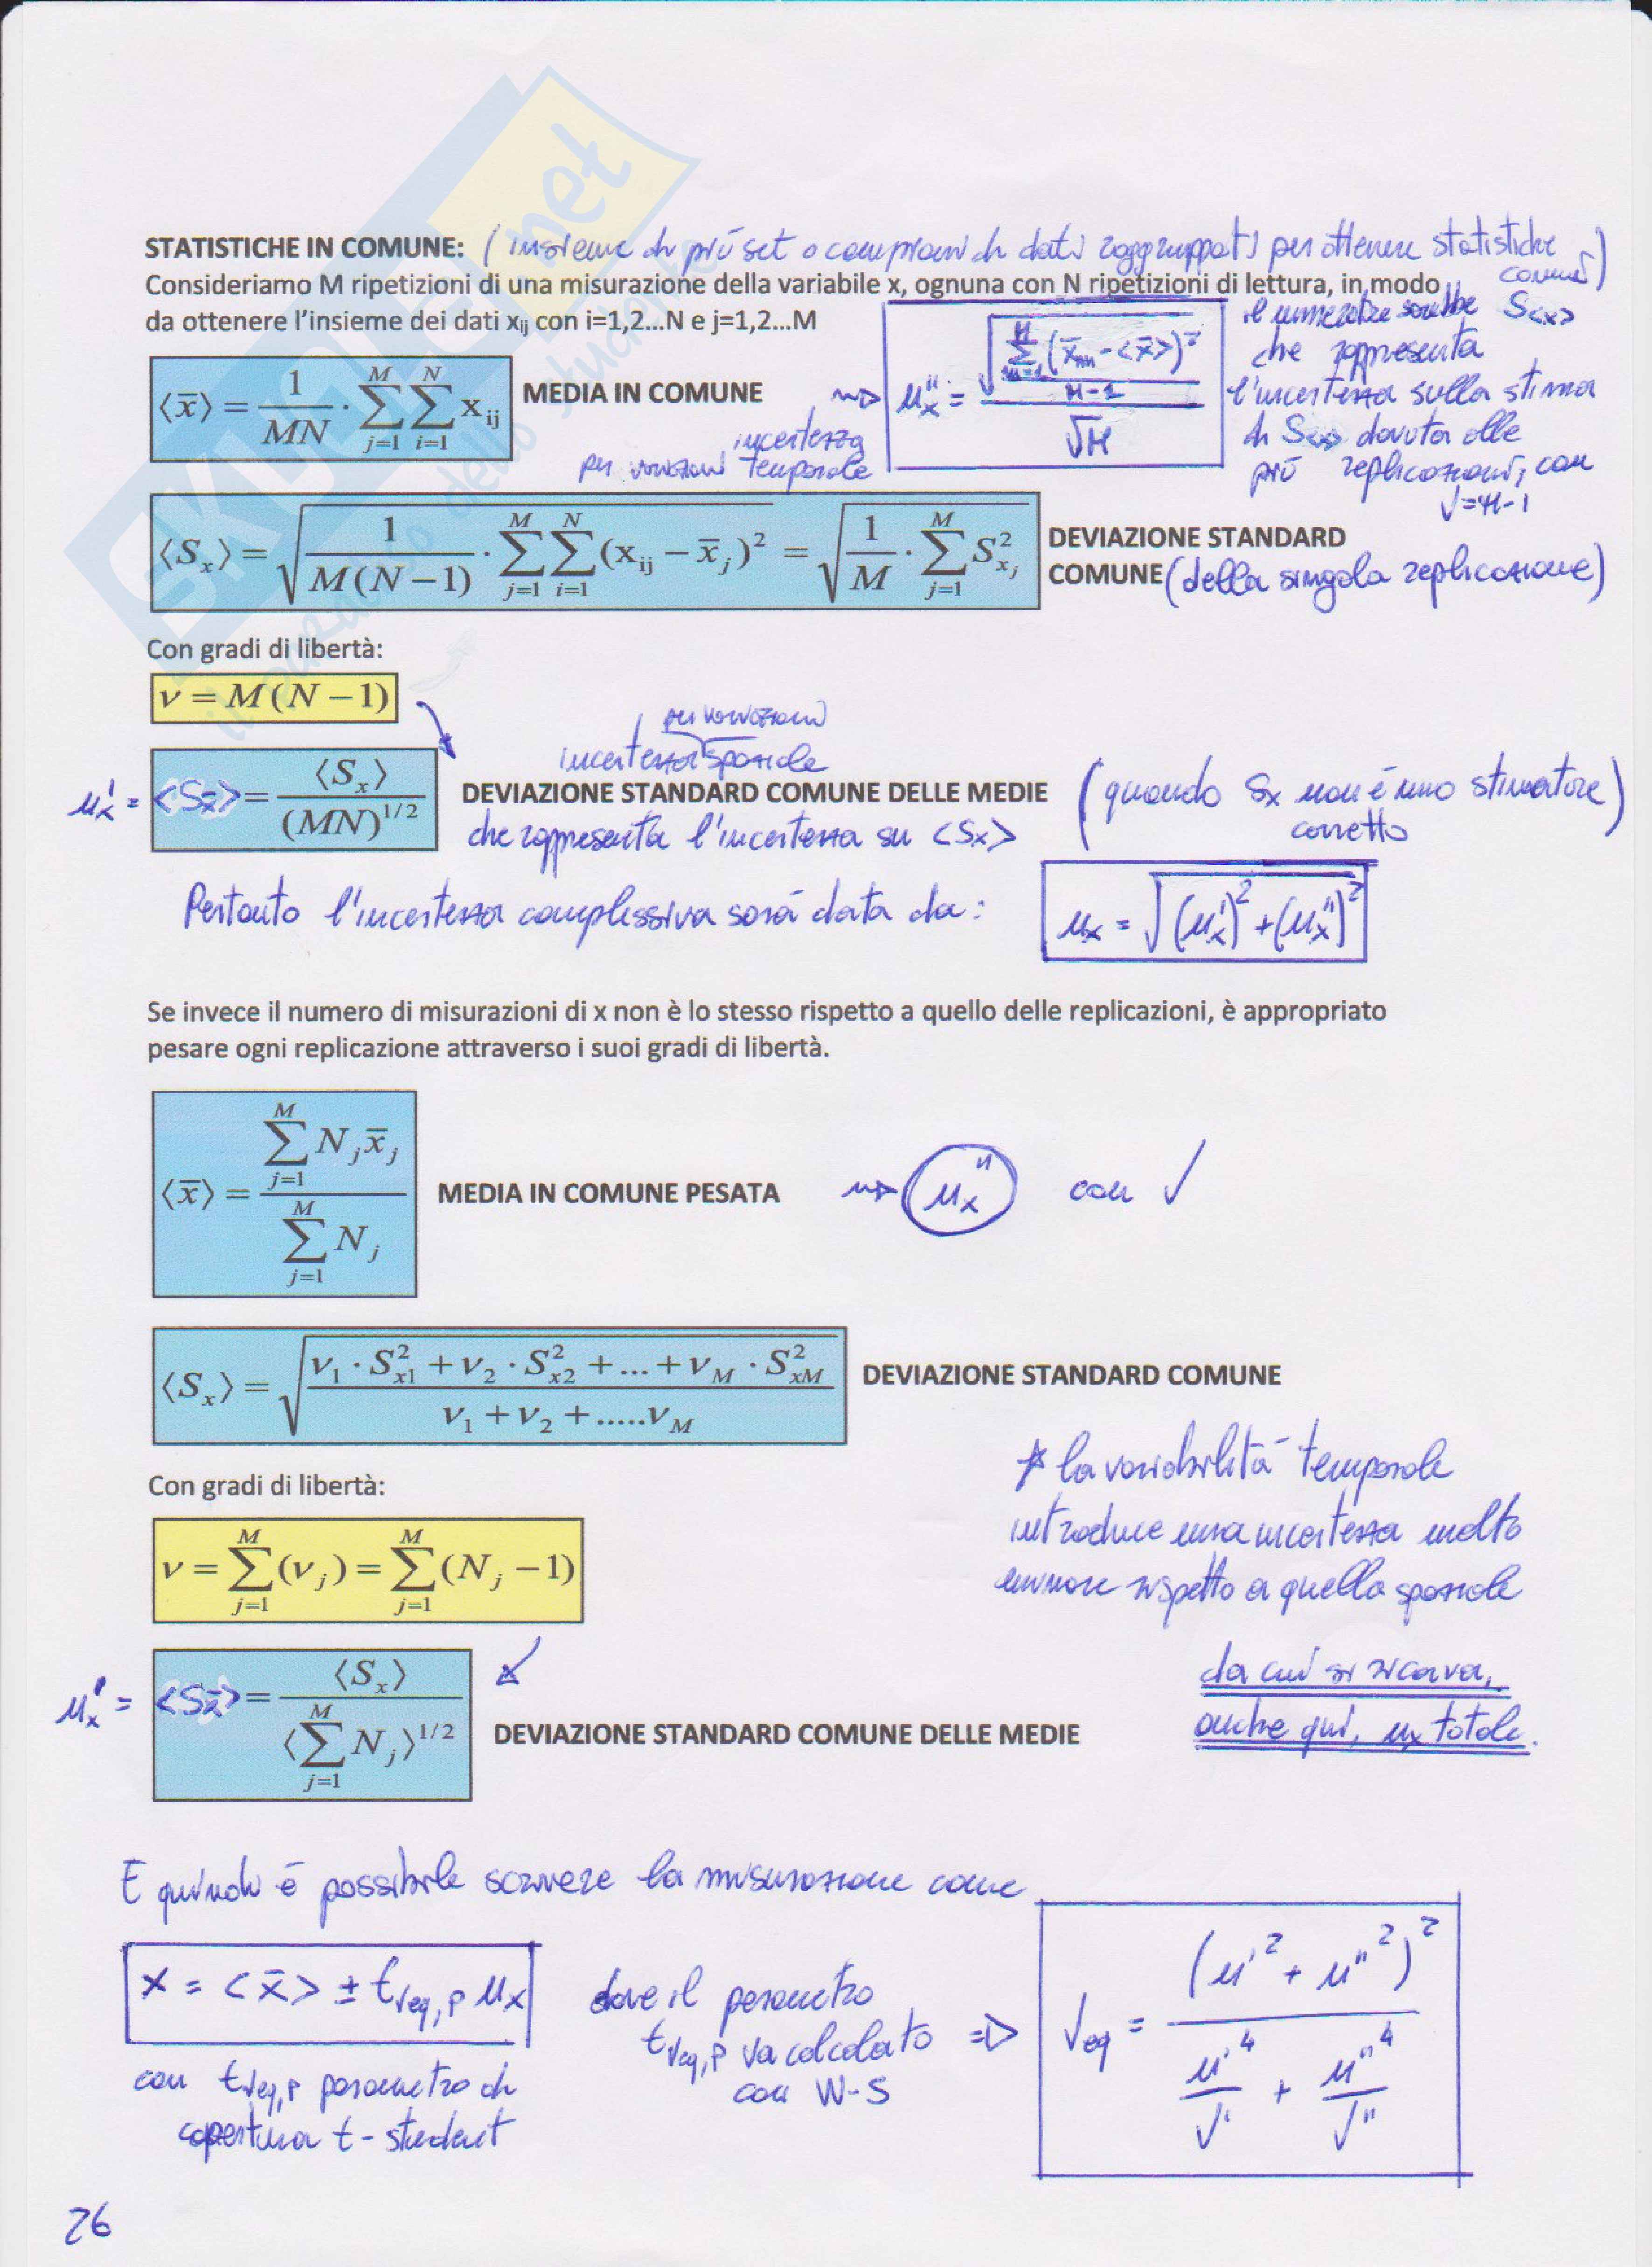 SKUOLA.net
STATISTICHE IN COMUNE: (insieme di più set o campioni di dati raggruppati per ottenere statistiche comuni)
Consideriamo M ripetizioni di una misurazione della variabile x, ognuna con N ripetizioni di lettura, in modo
da ottenere l'insieme dei dati xij con i=1,2...N e j=1,2...M
⟨x̄⟩ = 1/MN · Σ_{j=1}^{M} Σ_{i=1}^{N} x_ij MEDIA IN COMUNE
u''x = √( Σ_{m=1}^{M} (x̄m - <x̄>)² / (M-1) ) / √M
il numeratore sarebbe S<x>
che rappresenta
l'incertezza sulla stima
di S<x> dovuta alle
più replicazioni, con
ν=M-1
incertezza
per variazioni temporale
⟨Sx⟩ = √( 1/(M(N−1)) · Σ_{j=1}^{M} Σ_{i=1}^{N} (x_ij − x̄_j)² ) = √( 1/M · Σ_{j=1}^{M} S²_{xj} ) DEVIAZIONE STANDARD
COMUNE (della singola replicazione)
Con gradi di libertà:
ν = M(N−1)
per variazioni
incertezza spaziale
u'x = <Sx̄> = ⟨Sx⟩ / (MN)^{1/2} DEVIAZIONE STANDARD COMUNE DELLE MEDIE (quando Sx non è uno stimatore corretto)
che rappresenta l'incertezza su <Sx>
Pertanto l'incertezza complessiva sarà data da: ux = √( (u'x)² + (u''x)² )
Se invece il numero di misurazioni di x non è lo stesso rispetto a quello delle replicazioni, è appropriato
pesare ogni replicazione attraverso i suoi gradi di libertà.
⟨x̄⟩ = Σ_{j=1}^{M} N_j x̄_j / Σ_{j=1}^{M} N_j MEDIA IN COMUNE PESATA u''x con ν
⟨Sx⟩ = √( (ν1 · S²x1 + ν2 · S²x2 + ... + νM · S²xM) / (ν1 + ν2 + .....νM) ) DEVIAZIONE STANDARD COMUNE
* la variabilità temporale
introduce una incertezza molto
minore rispetto a quella spaziale
Con gradi di libertà:
ν = Σ_{j=1}^{M} (ν_j) = Σ_{j=1}^{M} (N_j −1)
da cui si ricava,
anche qui, ux totale.
u'x = <Sx̄> = ⟨Sx⟩ / ⟨Σ_{j=1}^{M} N_j⟩^{1/2} DEVIAZIONE STANDARD COMUNE DELLE MEDIE
E quindi è possibile scrivere la misurazione come
x = <x̄> ± tνeq,P ux
con tνeq,P parametro di
copertura t-student
dove il parametro
tνeq,P va calcolato
con W-S
⇒ νeq = (u'² + u''²)² / ( u'⁴/ν' + u''⁴/ν'' )
26